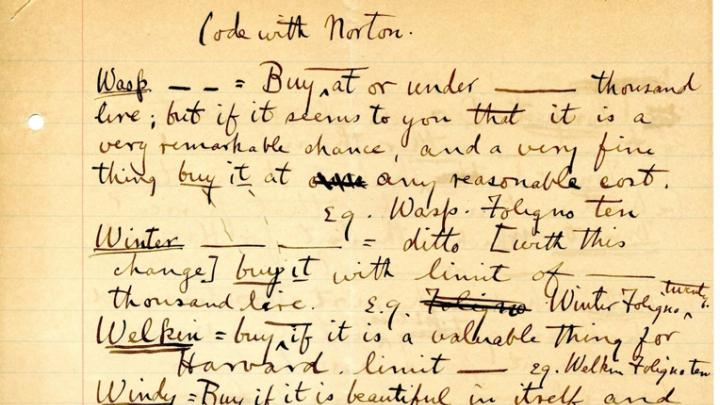 Code with Norton.
Wasp — — = Buy at or under —— thousand
lire; but if it seems to you that it is a
very remarkable chance, and a very fine
thing buy it at any reasonable cost.
Eg. Wasp. Foligno ten
Winter —— —— = ditto [with this
change] buy it with limit of ——
thousand lire. E.g. Foligno Winter Foligno, twenty.
Welkin = buy if it is a valuable thing for
Harvard. limit — eg. Welkin Foligno ten
Windy = Buy if it is beautiful in itself and